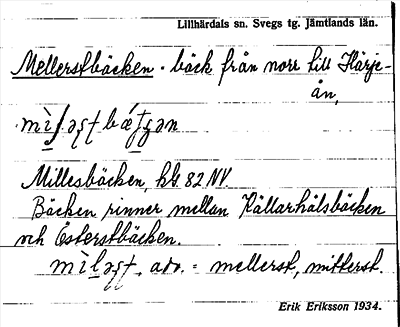 Lillhärdals sn. Svegs tg. Jämtlands län.
Mellerstbäcken. bäck från norr till Härje-
ån,
Millesbäcken, kG. 82 NV.
Bäcken rinner mellan Källarhålsbäcken
och Österstbäcken.
adv. = mellerst, mitterst.
Erik Eriksson 1934.